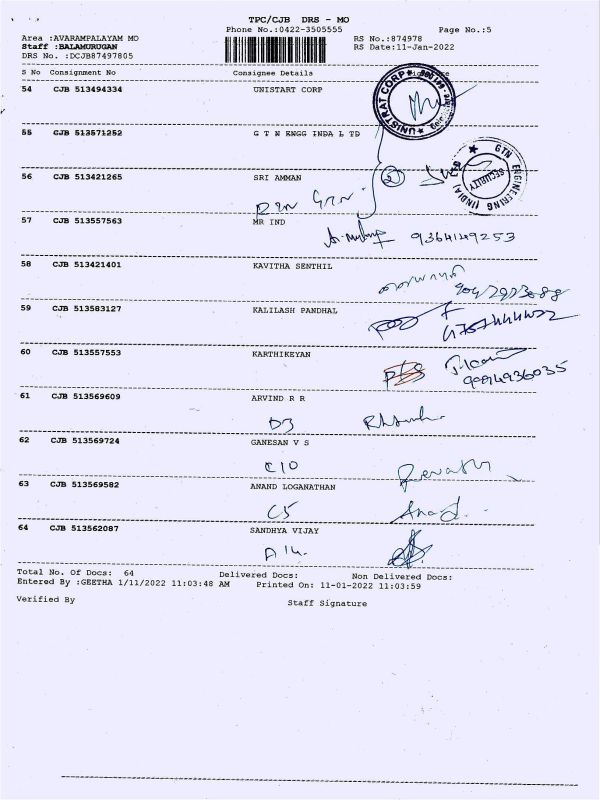 TPC/CJB DRS - MO
Phone No.:0422-3505555 Page No.:5
Area :AVARAMPALAYAM MO RS No.:874978
Staff :BALAMURUGAN RS Date:11-Jan-2022
DRS No. :DCJB87497805
S No Consignment No Consignee Details Signature
54 CJB 513494334 UNISTART CORP
UNISTRAT CORP
55 CJB 513571252 G T N ENGG INDA L TD
GTN ENGINEERING (INDIA) LTD
SECURITY
56 CJB 513421265 SRI AMMAN
57 CJB 513557563 MR IND
9364149253
58 CJB 513421401 KAVITHA SENTHIL
59 CJB 513583127 KALILASH PANDHAL
60 CJB 513557553 KARTHIKEYAN
61 CJB 513569609 ARVIND R R
D3
62 CJB 513569724 GANESAN V S
C10 Revathi
63 CJB 513569582 ANAND LOGANATHAN
C5 Anand
64 CJB 513562087 SANDHYA VIJAY
A 14.
Total No. Of Docs: 64 Delivered Docs: Non Delivered Docs:
Entered By :GEETHA 1/11/2022 11:03:48 AM Printed On: 11-01-2022 11:03:59
Verified By Staff Signature